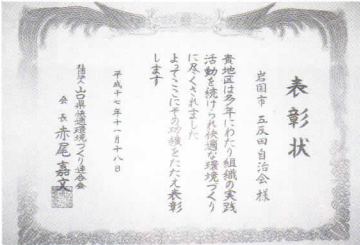 表彰状
岩国市 五反田自治会様
貴地区は多年にわたり組織の実践
活動を続けられ快適な環境づくり
に尽くされました
よってここにその功績をたたえ表彰
します
平成十七年十一月十八日
社団法人 山口県快適環境づくり連合会
会長 赤尾嘉文